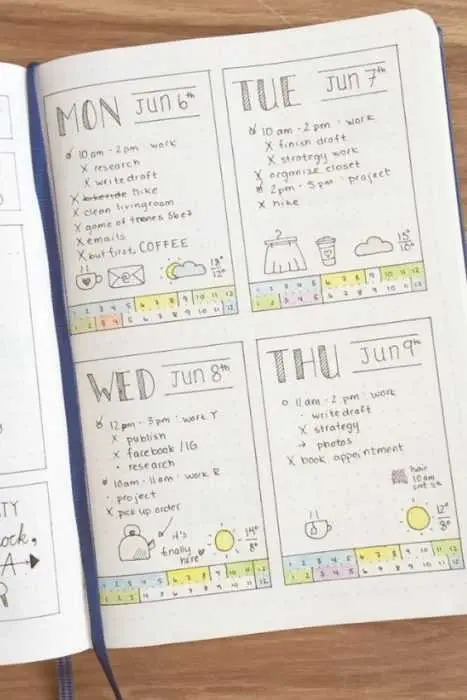 MON Jun 6th
10 am - 2 pm · work
X research
X write draft
X hike
X clean livingroom
X game of thrones S6e7
X emails
X but first, COFFEE
12°
1 2 3 4 5 6 7 8 9 10 11 12
1 2 3 4 5 6 7 8 9 10 11 12
TUE Jun 7th
10 am - 2 pm · work
X finish draft
X strategy work
X organize closet
2pm - 5pm · project
X hike
15°
10°
1 2 3 4 5 6 7 8 9 10 11 12
1 2 3 4 5 6 7 8 9 10 11 12
WED Jun 8th
12 pm - 3 pm · work Y
X publish
X facebook / IG
· research
10am - 11am · work R
· project
X pick up order
it's
finally
here
14°
8°
1 2 3 4 5 6 7 8 9 10 11 12
1 2 3 4 5 6 7 8 9 10 11 12
THU Jun 9th
11 am - 2 pm · work
· write draft
X strategy
→ photos
X book appointment
hair
10am
12°
8°
1 2 3 4 5 6 7 8 9 10 11 12
1 2 3 4 5 6 7 8 9 10 11 12
TY
ock,
A
R